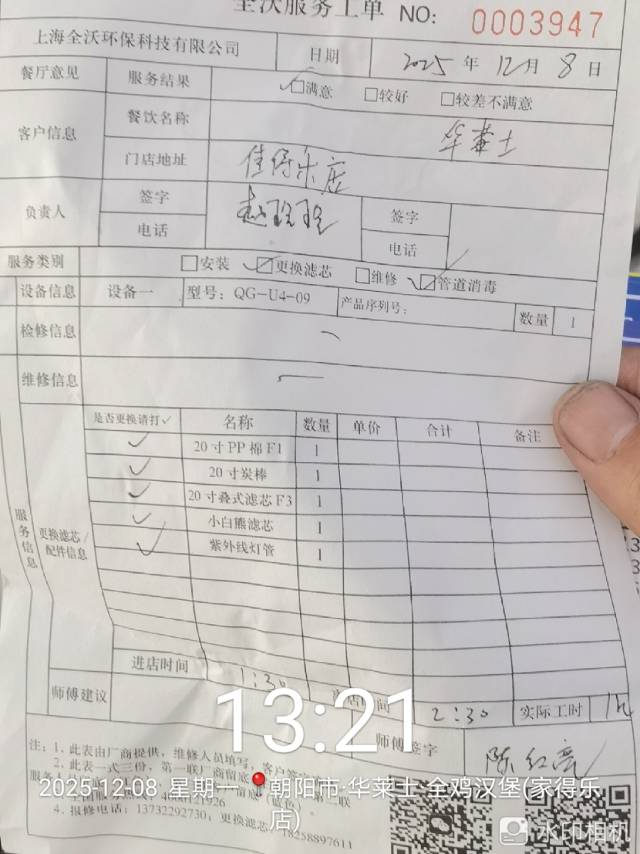 全沃服务工单 NO: 0003947
上海全沃环保科技有限公司 日期 2025 年 12 月 8 日
餐厅意见 服务结果 ☑满意 □较好 □较差不满意
客户信息 餐饮名称 华莱士
门店地址 佳得乐店
负责人 签字 签字
电话 电话
服务类别 □安装 ☑更换滤芯 □维修 ☑管道消毒
设备信息 设备一 型号: QG-U4-09 产品序列号: 数量 1
检修信息
维修信息
服务信息 更换滤芯/配件信息
是否更换请打✓ 名称 数量 单价 合计 备注
✓ 20寸PP棉F1 1
✓ 20寸炭棒 1
✓ 20寸叠式滤芯F3 1
✓ 小白熊滤芯 1
✓ 紫外线灯管 1
进店时间 1:30
2:30 实际工时 1h
师傅建议
师傅签字 陈红亮
注: 1、此表由厂商提供, 维修人员填写, 客户签字
2、此表一式三份, 第一联厂商留底
4、报修电话: 13732292730; 更换滤芯: 18258897611
13:21
2025-12-08 星期一 朝阳市·华莱士 全鸡汉堡(家得乐店)
水印相机